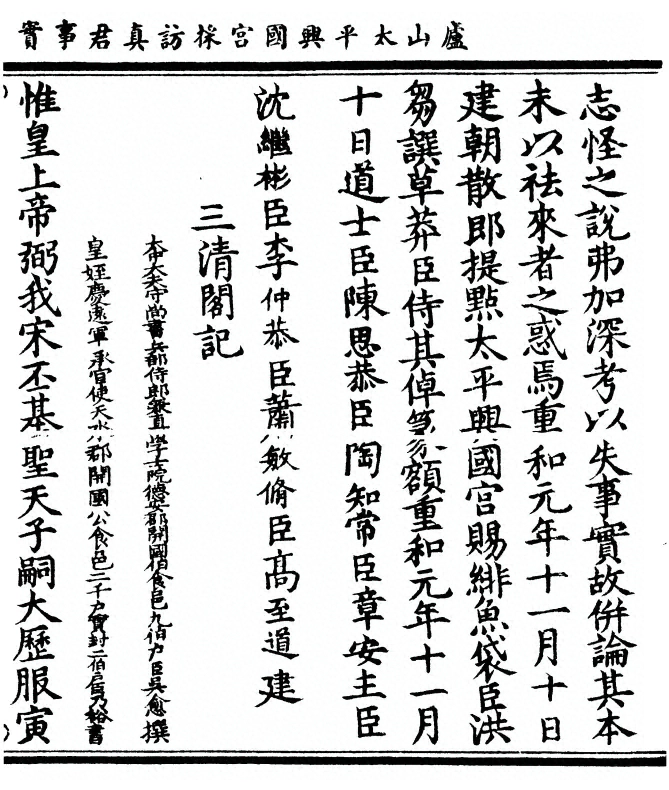 廬山太平興國宮採訪真君事實
志怪之說弗加深考以失事實故併論其本
末以祛來者之惑焉重和元年十一月十日
建朝散郎提點太平興國宮賜緋魚袋臣洪
芻譔草莽臣侍其倬篆額重和元年十一月
十日道士臣陳思恭臣陶知常臣章安主臣
沈繼彬臣李仲恭臣蕭敏脩臣高至道建
三清閣記
太中大夫守尚書兵部侍郎兼直學士院德安郡開國伯食邑九伯户臣吳愈撰
皇姪慶遠軍承宣使天水郡開國公食邑二千户實封二伯户臣乃裕書
惟皇上帝弼我宋丕基聖天子嗣大歷服寅